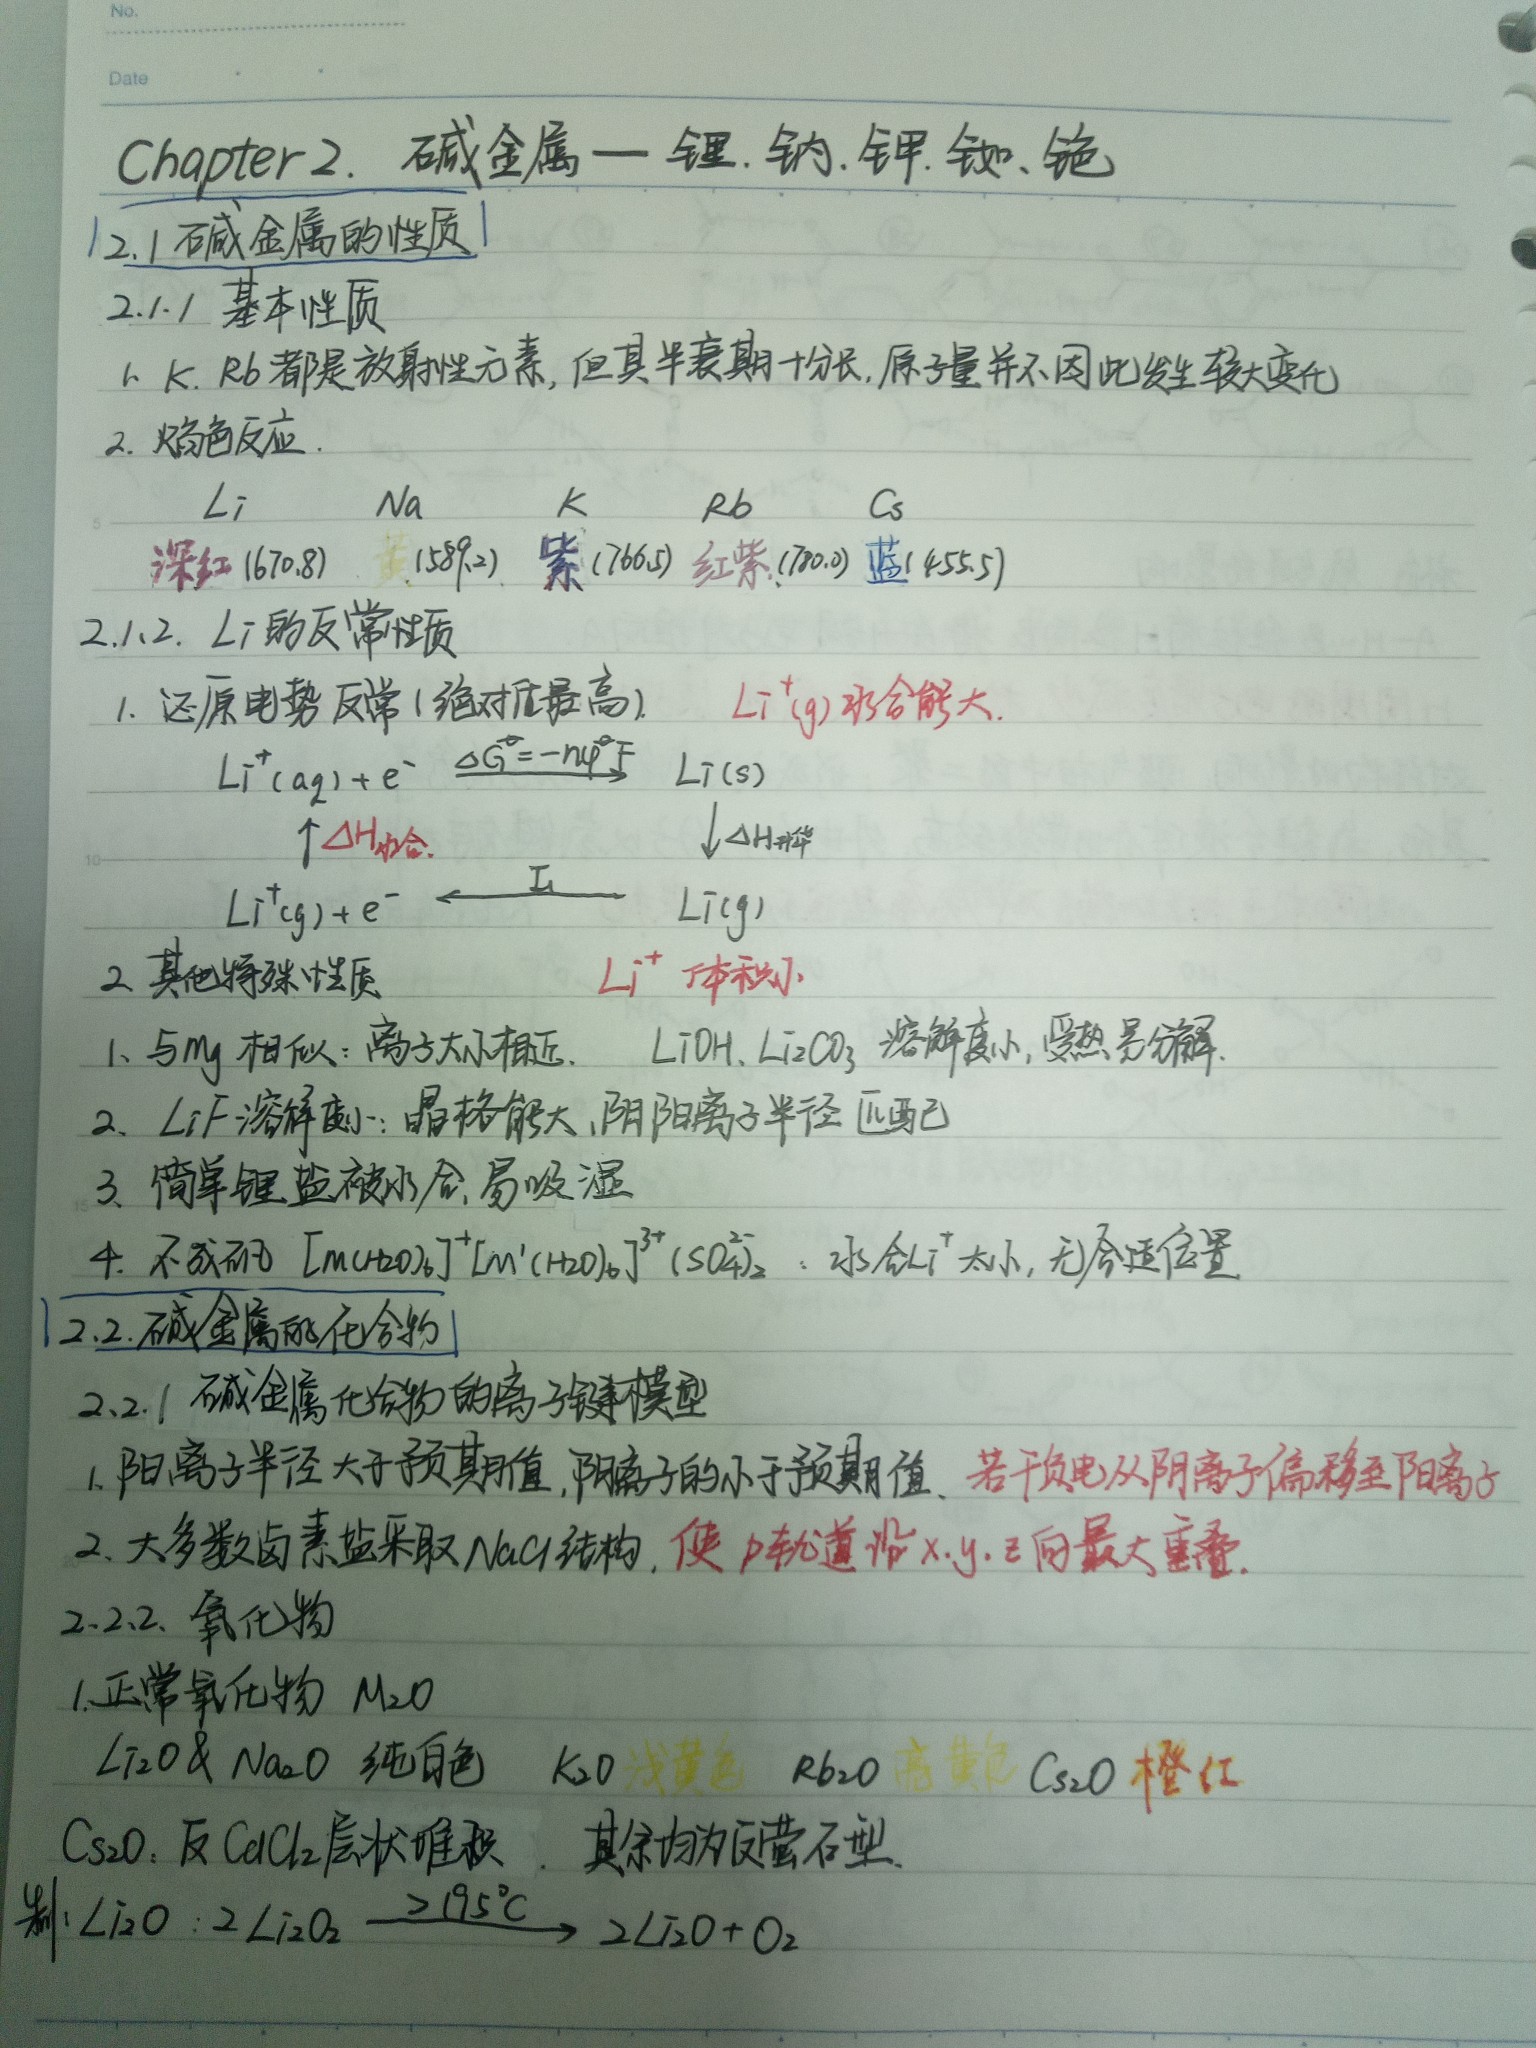 No.
Date
Chapter 2. 碱金属 — 锂.钠.钾.铷、铯
2.1 碱金属的性质
2.1.1 基本性质
1. K. Rb都是放射性元素, 但其半衰期十分长, 原子量并不因此发生较大变化
2. 焰色反应.
Li Na K Rb Cs
深红(670.8) 黄(589.2) 紫(766.5) 红紫(780.0) 蓝(455.5)
2.1.2. Li的反常性质
1. 还原电势反常(绝对值最高). Li⁺(g)水合能大.
Li⁺(aq) + e⁻ ΔG°=-nφ°F Li(s)
↑ΔH水合. ↓ΔH升华
Li⁺(g) + e⁻ ← I₁ Li(g)
2. 其他特殊性质 Li⁺ 体积小
1、与Mg相似: 离子大小相近. LiOH、Li₂CO₃ 溶解度小, 受热易分解.
2、LiF溶解度小: 晶格能大, 阴阳离子半径匹配
3、简单锂盐被水合、易吸湿
4. 不成矾 [M(H2O)₆]⁺[M'(H2O)₆]³⁺(SO₄²⁻)₂ : 水合Li⁺太小, 无合适位置
2.2. 碱金属的化合物
2.2.1 碱金属化合物的离子键模型
1. 阳离子半径大于预期值, 阴离子的小于预期值、若干负电从阴离子偏移至阳离子
2、大多数卤素盐采取NaCl结构, 使p轨道沿x.y.z向最大重叠.
2.2.2. 氧化物
1. 正常氧化物 M₂O
Li₂O & Na₂O 纯白色 K₂O 浅黄色 Rb₂O 亮黄色 Cs₂O 橙红
Cs₂O: 反CdCl₂层状堆积. 其余均为反萤石型.
制: Li₂O : 2Li₂O₂ >195°C → 2Li₂O + O₂